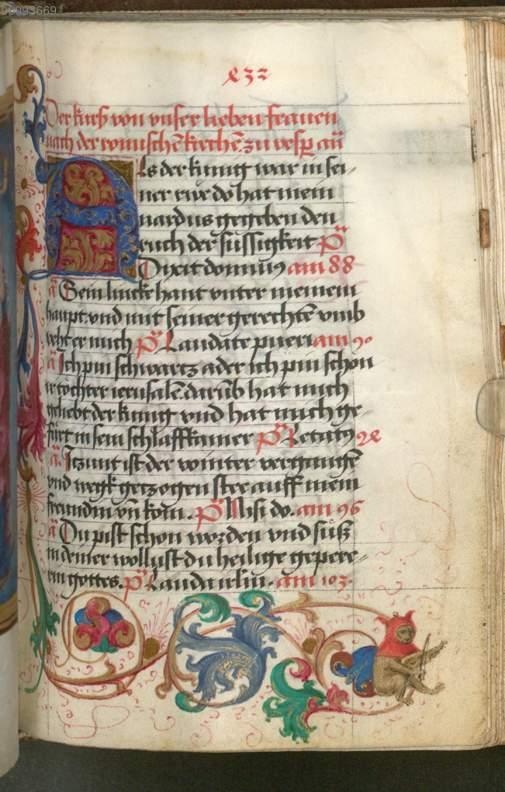 Der kurß von vnser lieben frauen
nach der romischē kirchē zu vesꝑ aū
Als der kunig war in sei-
ner rūe do hat mein
nardus gegeben den
ruch der süssigkeit Pͣ
Dixit dominus am 88
aͣ Sein lincke hant vnter meinem
haupt vnd mit seiner gerechtē vmb
veht er mich Pͣ Laudate pueri am 90
aͣ Ich pin schwartz ader ich pin schon
ir tochter ierusalē darūb hat mich
geliebt der kunig vnd hat mich ge-
fürt in sein schlaffkamer Pͣ Letatus
aͣ Itzunt ist der winter vergangē
vnd wegk getzogen stee auff mein
freundin vn̄ kom. Pͣ Nisi do. am 96
aͣ Du pist schon worden vnd süß
in deiner wollust du heilige gepere-
rin gottes. Pͣ Lauda irlm̄. am 103